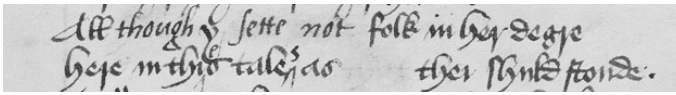 All though y sette not folk in her degre
here in thies tales as ther shuld stonde.